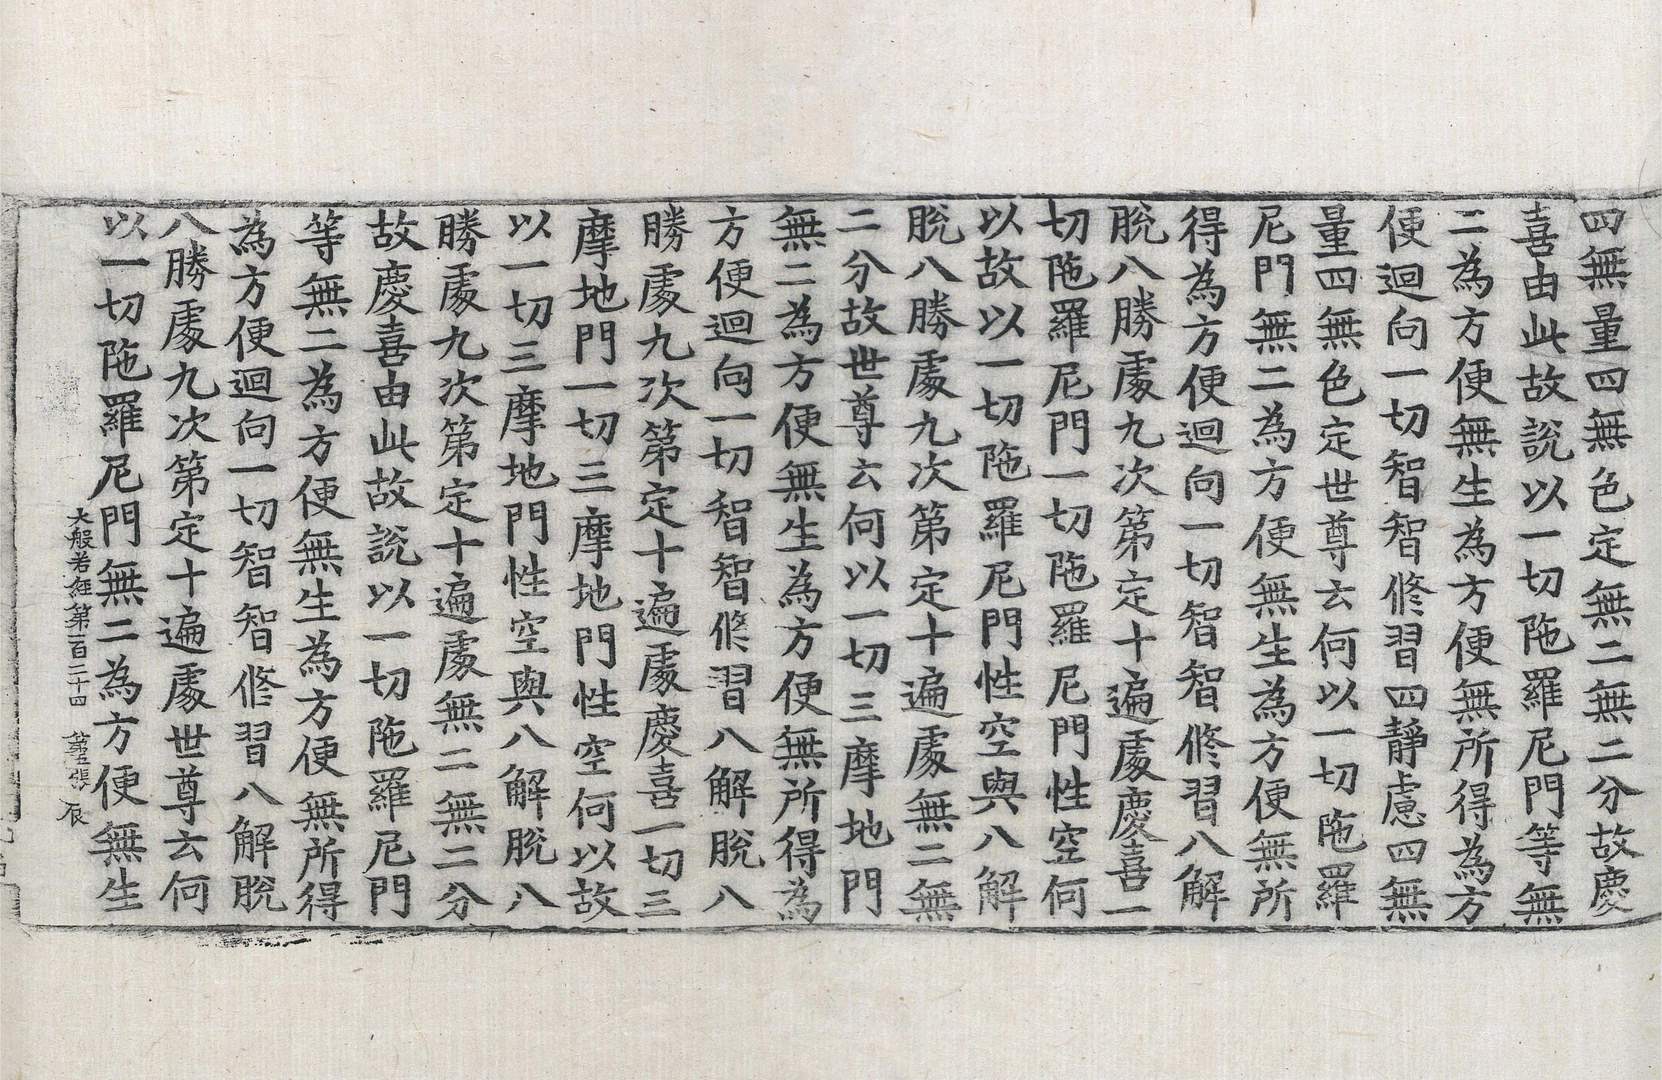 四無量四無色定無二無二分故慶
喜由此故說以一切陁羅尼門等無
二為方便無生為方便無所得為方
便迴向一切智智修習四靜慮四無
量四無色定世尊云何以一切陁羅
尼門無二為方便無生為方便無所
得為方便迴向一切智智修習八解
脫八勝處九次第定十遍處慶喜一
切陁羅尼門一切陁羅尼門性空何
以故以一切陁羅尼門性空與八解
脫八勝處九次第定十遍處無二無
二分故世尊云何以一切三摩地門
無二為方便無生為方便無所得為
方便迴向一切智智修習八解脫八
勝處九次第定十遍處慶喜一切三
摩地門一切三摩地門性空何以故
以一切三摩地門性空與八解脫八
勝處九次第定十遍處無二無二分
故慶喜由此故說以一切陁羅尼門
等無二為方便無生為方便無所得
為方便迴向一切智智修習八解脫
八勝處九次第定十遍處世尊云何
以一切陁羅尼門無二為方便無生
大般若經第一百二十四 第五張 辰